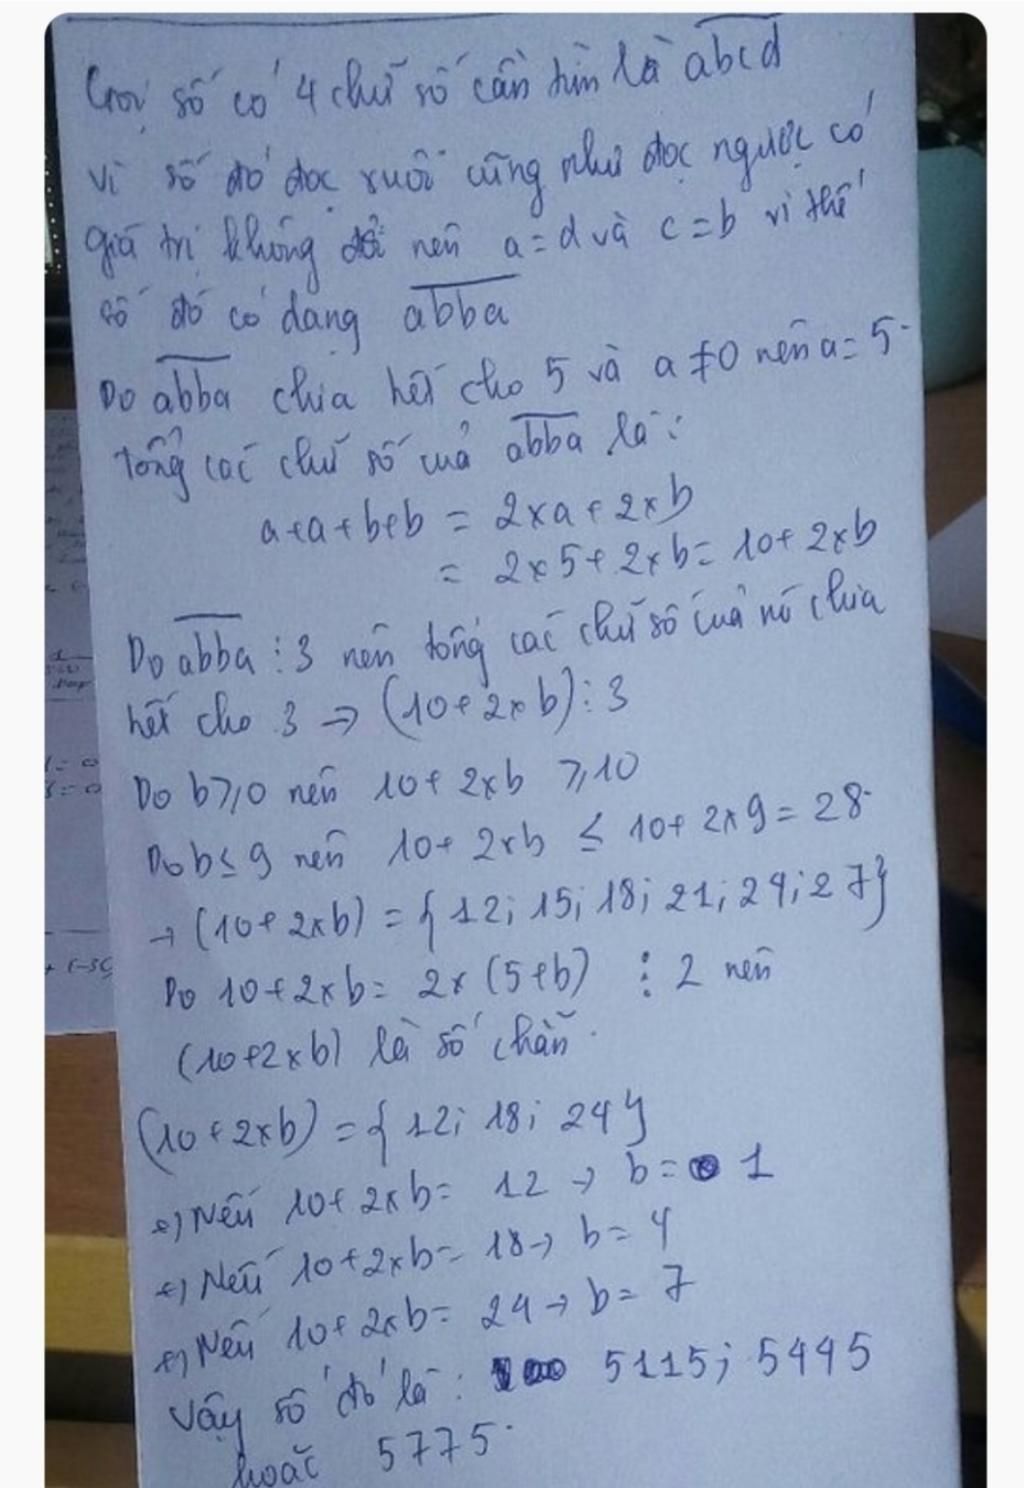 Gọi số có 4 chữ số cần tìm là abcd
Vì số đó đọc xuôi cũng như đọc ngược có
giá trị không đổi nên a=d và c=b vì thế
số đó có dạng abba
Do abba chia hết cho 5 và a≠0 nên a=5.
Tổng các chữ số của abba là:
a+a+b+b = 2×a+2×b
= 2×5+2×b= 10+2×b
Do abba ⋮3 nên tổng các chữ số của nó chia
hết cho 3 → (10+2×b)⋮3
Do b⩾0 nên 10+2×b ⩾10
Do b≤9 nên 10+2×b ≤ 10+2×9=28.
→(10+2×b) = {12; 15; 18; 21; 24; 27}
Do 10+2×b= 2×(5+b) ⋮2 nên
(10+2×b) là số chẵn.
(10+2×b) ={12; 18; 24}
+) Nếu 10+2×b= 12 → b= 1
+) Nếu 10+2×b= 18→ b= 4
+) Nếu 10+2×b= 24→ b= 7
Vậy số đó là: 5115; 5445
hoặc 5775.